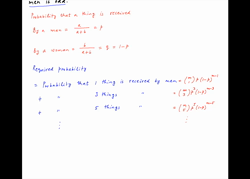 men is odd.
Probability that a thing is received
By a man = a/(a+b) = p
By a woman = b/(a+b) = q = 1-p
Required probability
= Probability that 1 thing is received by man = (m 1) p (1-p)^(m-1)
+ " 3 things " = (m 3) p^3 (1-p)^(m-3)
+ " 5 things " = (m 5) p^5 (1-p)^(m-5)